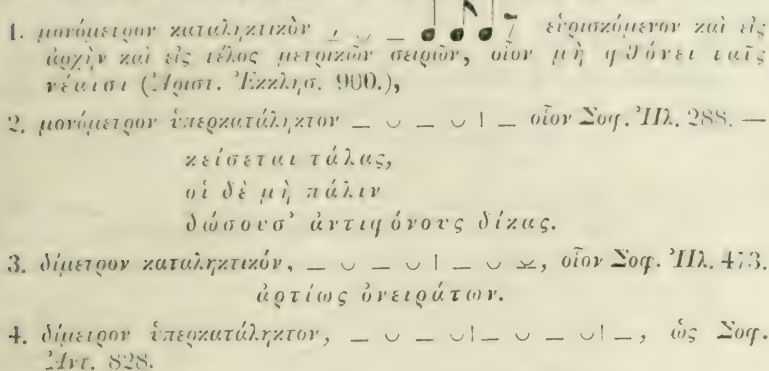 1. μονόμετρον καταληκτικὸν _ ᴗ _ εὑρισκόμενον καὶ εἰς
ἀρχὴν καὶ εἰς τέλος μετρικῶν σειρῶν, οἷον μὴ φθόνει ταῖς
νέαισι (Ἀριστ. Ἐκκλησ. 900.),
2. μονόμετρον ὑπερκατάληκτον _ ᴗ _ ᴗ | _ οἷον Σοφ. Ἠλ. 288. —
κείσεται τάλας,
οἱ δὲ μὴ πάλιν
δώσουσ' ἀντιφόνους δίκας.
3. δίμετρον καταληκτικόν, _ ᴗ _ ᴗ | _ ᴗ ⏓, οἷον Σοφ. Ἠλ. 473.
ἀρτίως ὀνειράτων.
4. δίμετρον ὑπερκατάληκτον, _ ᴗ _ ᴗ | _ ᴗ _ ᴗ | _, ὡς Σοφ.
Ἀντ. 828.